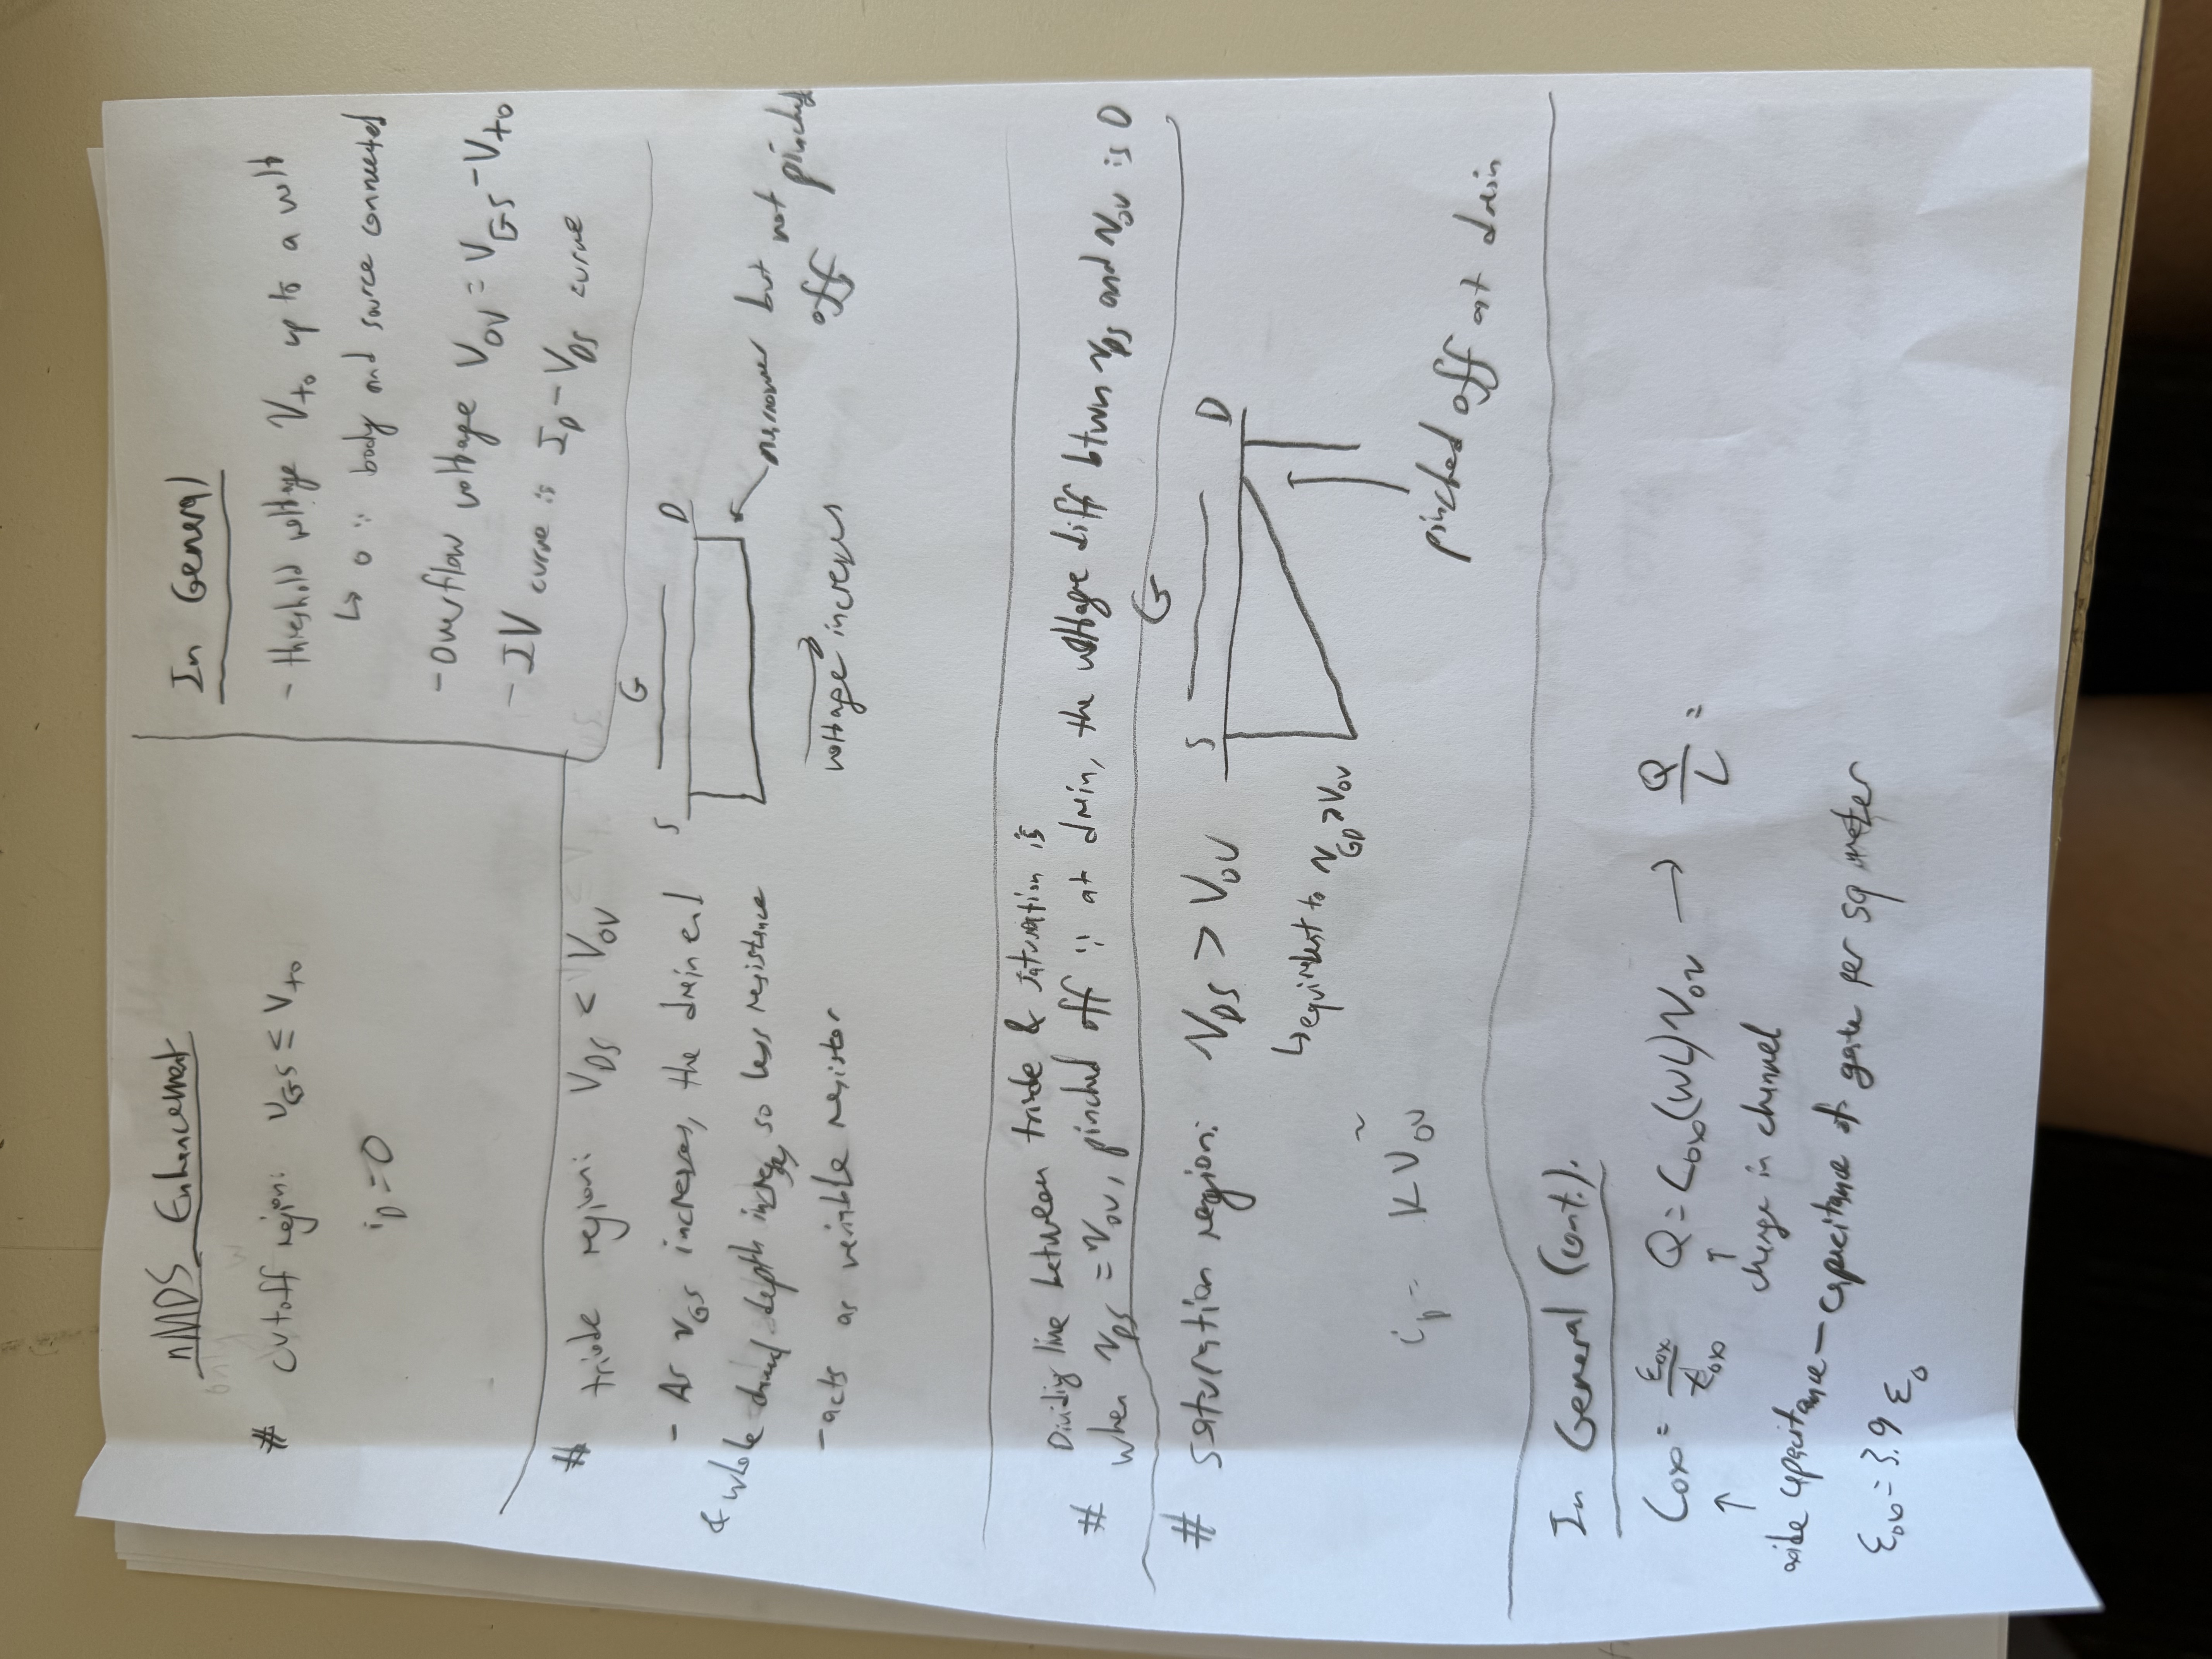 nMOS Enhancement
# cutoff region: VGS ≤ Vto
iD = 0
In General
- threshold voltage Vto up to a volt
↳ 0 ∵ body and source connected
- Overflow voltage VOV = VGS - Vto
- IV curve is ID - VDS curve
# triode region: VDS < VOV
- As vGS increases, the drain end
& whole depth increases so less resistance
- acts as variable resistor
G
S D
narrower but not pinched
off
voltage increases
# Dividing line between triode & saturation is
when vDS = vOV, pinched off ∵ at drain, the voltage diff btwn vDS and vOV is 0
# saturation region: vDS > VOV
↳ equivalent to vGD > VOV
iD = KVOV²
G
S D
pinched off at drain
In General (cont.).
Cox = εox/tox Q = Cox(WL)vov → Q/L =
↑ ↑
charge in channel
oxide capacitance - capacitance of gate per sq meter
εox = 3.9 ε0